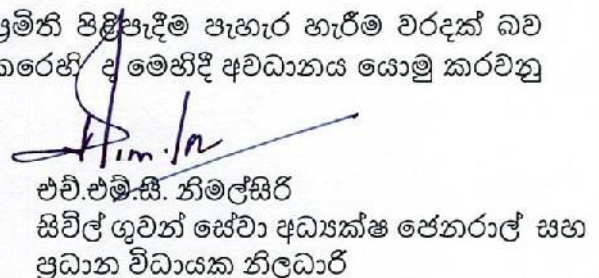 ප්‍රමිති පිළිපැදීම පැහැර හැරීම වරදක් බව
කරෙහි ද මෙහිදී අවධානය යොමු කරවනු
එච්.එම්.සී. නිමල්සිරි
සිවිල් ගුවන් සේවා අධ්‍යක්ෂ ජෙනරාල් සහ
ප්‍රධාන විධායක නිලධාරි